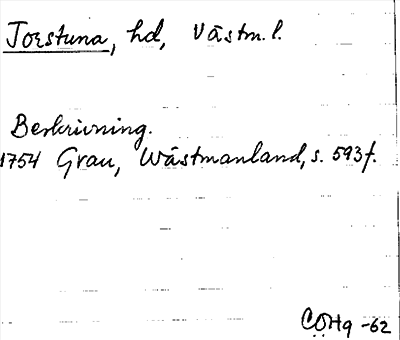 Torstuna, hd, Västm. l.
Beskrivning.
1754 Grau, Wästmanland, s. 593 f.
CÖHg -62